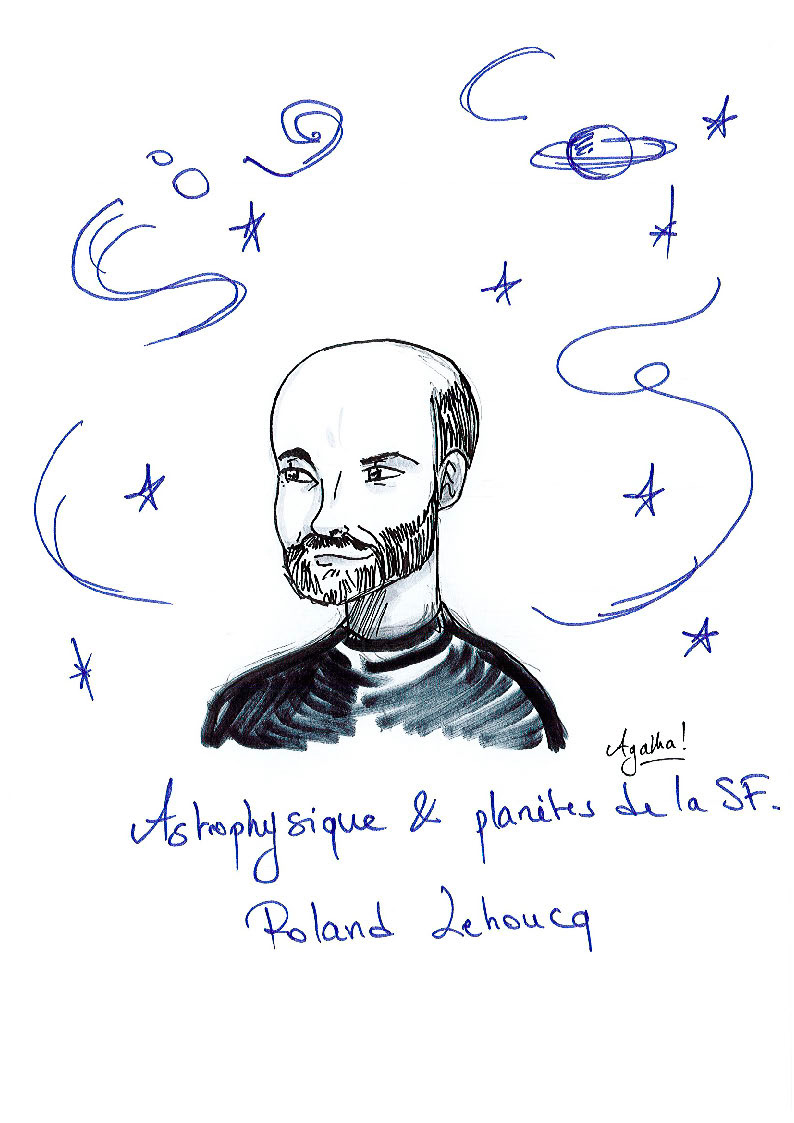 Agatha!
Astrophysique & planètes de la SF.
Roland Lehoucq